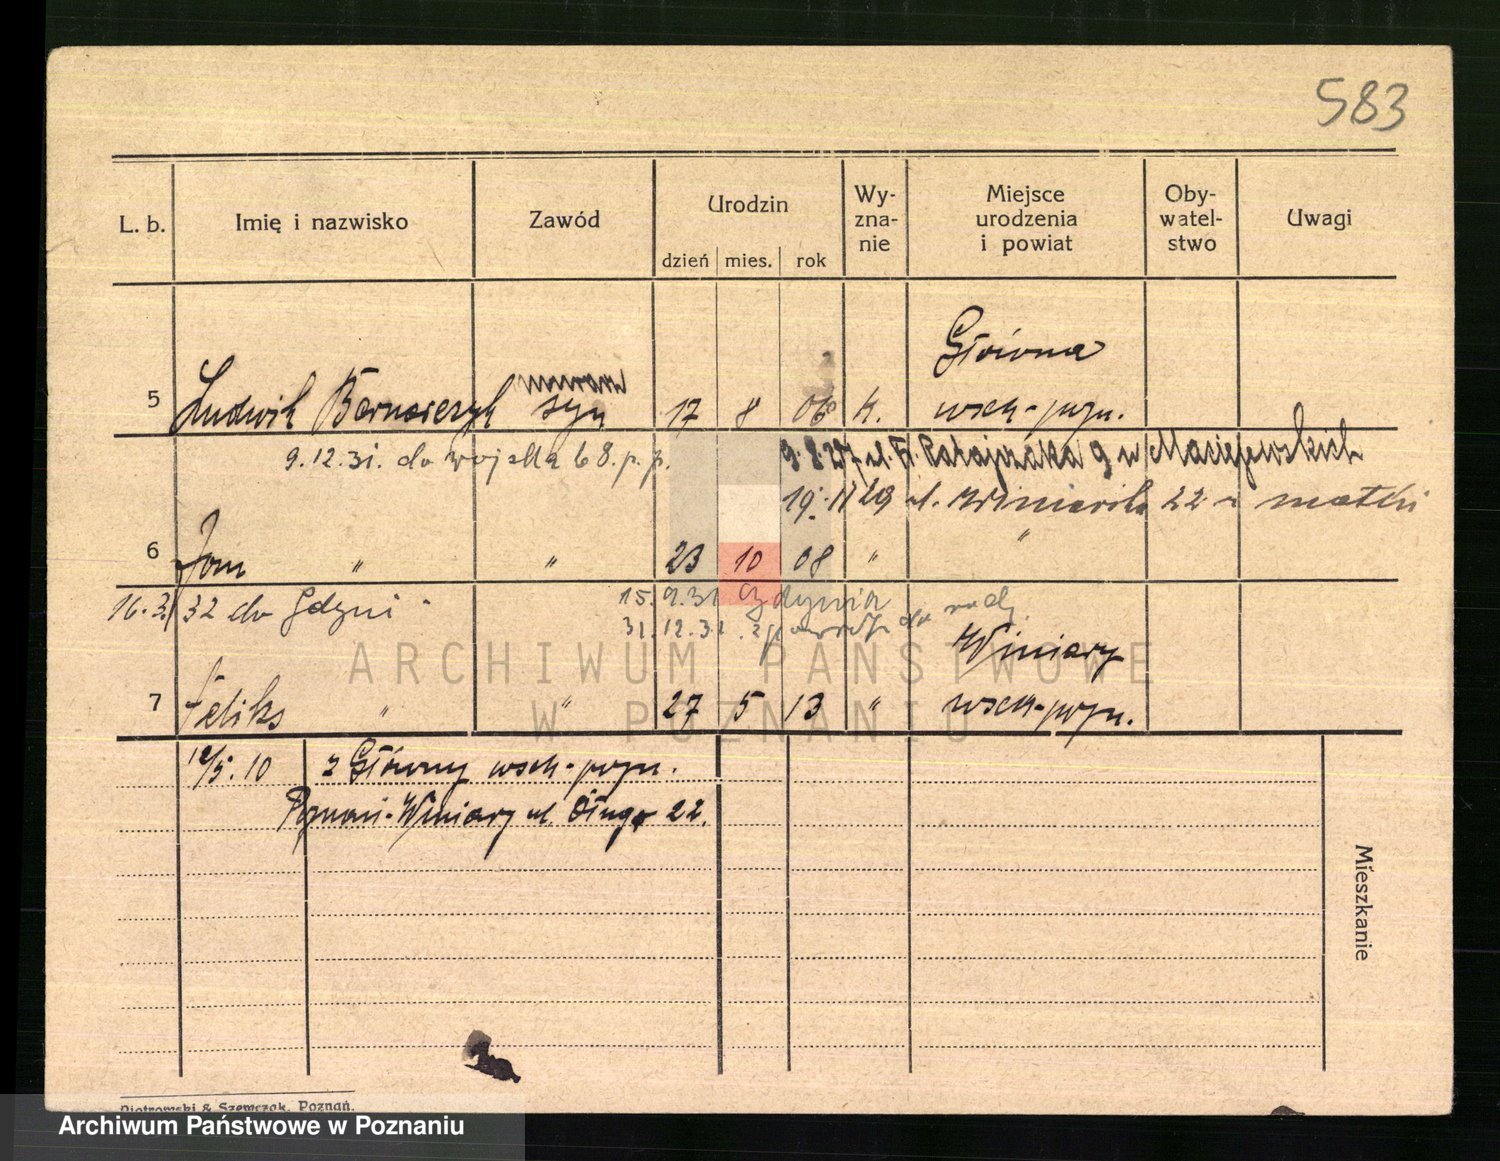 583
L. b. Imię i nazwisko Zawód Urodzin dzień mies. rok Wy-zna-nie Miejsce urodzenia i powiat Oby-watel-stwo Uwagi
Główna
5 Ludwik syn 17 8 06 k. wsch-pozn.
9.12.31. do wojska 68. p. p. 9.8.27 ul. Fr. Ratajczaka 9 u Maciejewskich
19. 11 29 ul. Winiarska 22 u matki
6 Jan " " 23 10 08 " "
16.3. 32 do Gdyni 15.9.31 Gdynia
31.12.31. z powrotem do
Winiary
7 Feliks " " 27 5 13 " wsch-pozn.
12/5.10 z Główny wsch-pozn.
Poznań-Winiary ul. Długa 22.
Mieszkanie
Piotrowski & Szemczak, Poznań.
ARCHIWUM PAŃSTWOWE
W POZNANIU
Archiwum Państwowe w Poznaniu